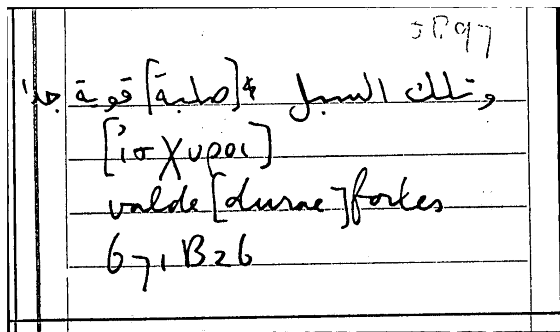 وتلك السبل *[صلبة] قوية جدا
[ἰσχυροι]
valde [durae] fortes
671 B26